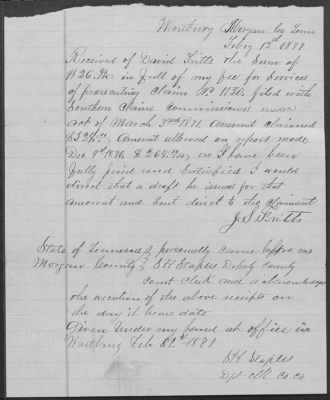 Wartburg Morgan Co Tenn
Feby 12th 1877
Received of David Fritts the sum of
$26. in full of my fee for services
of prosecuting Claim No 1130. filed with
Southern Claims Commissioners under
act of March 3rd 1871. Amount claimed
$524. Amount allowed on report made
Dec 9th 1876 $264. as I have been
fully paid and satisfied I would
direct that a draft be issued for that
amount and sent direct to the Claimant
J. S. Fritts
State of Tennessee } personally came before me
Morgan County } E H Staples Deputy County
Court Clerk and acknowledges
the execution of the above receipt on
the day it bears date
Given under my hand at office in
Wartburg Feb 12th 1877
E H Staples
Dpt Clk Co Co